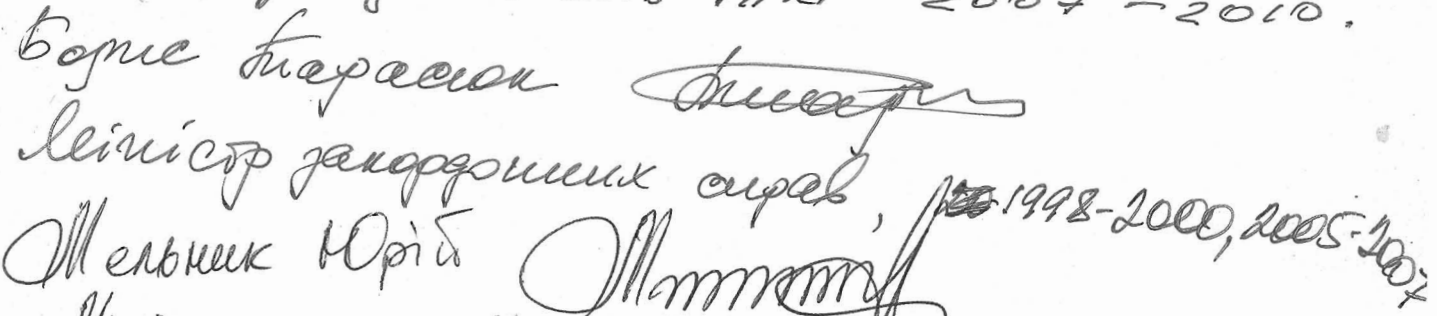 2007 - 2010.
Борис Тарасюк
Міністр закордонних справ, 1998-2000, 2005-2007
Мельник Юрій